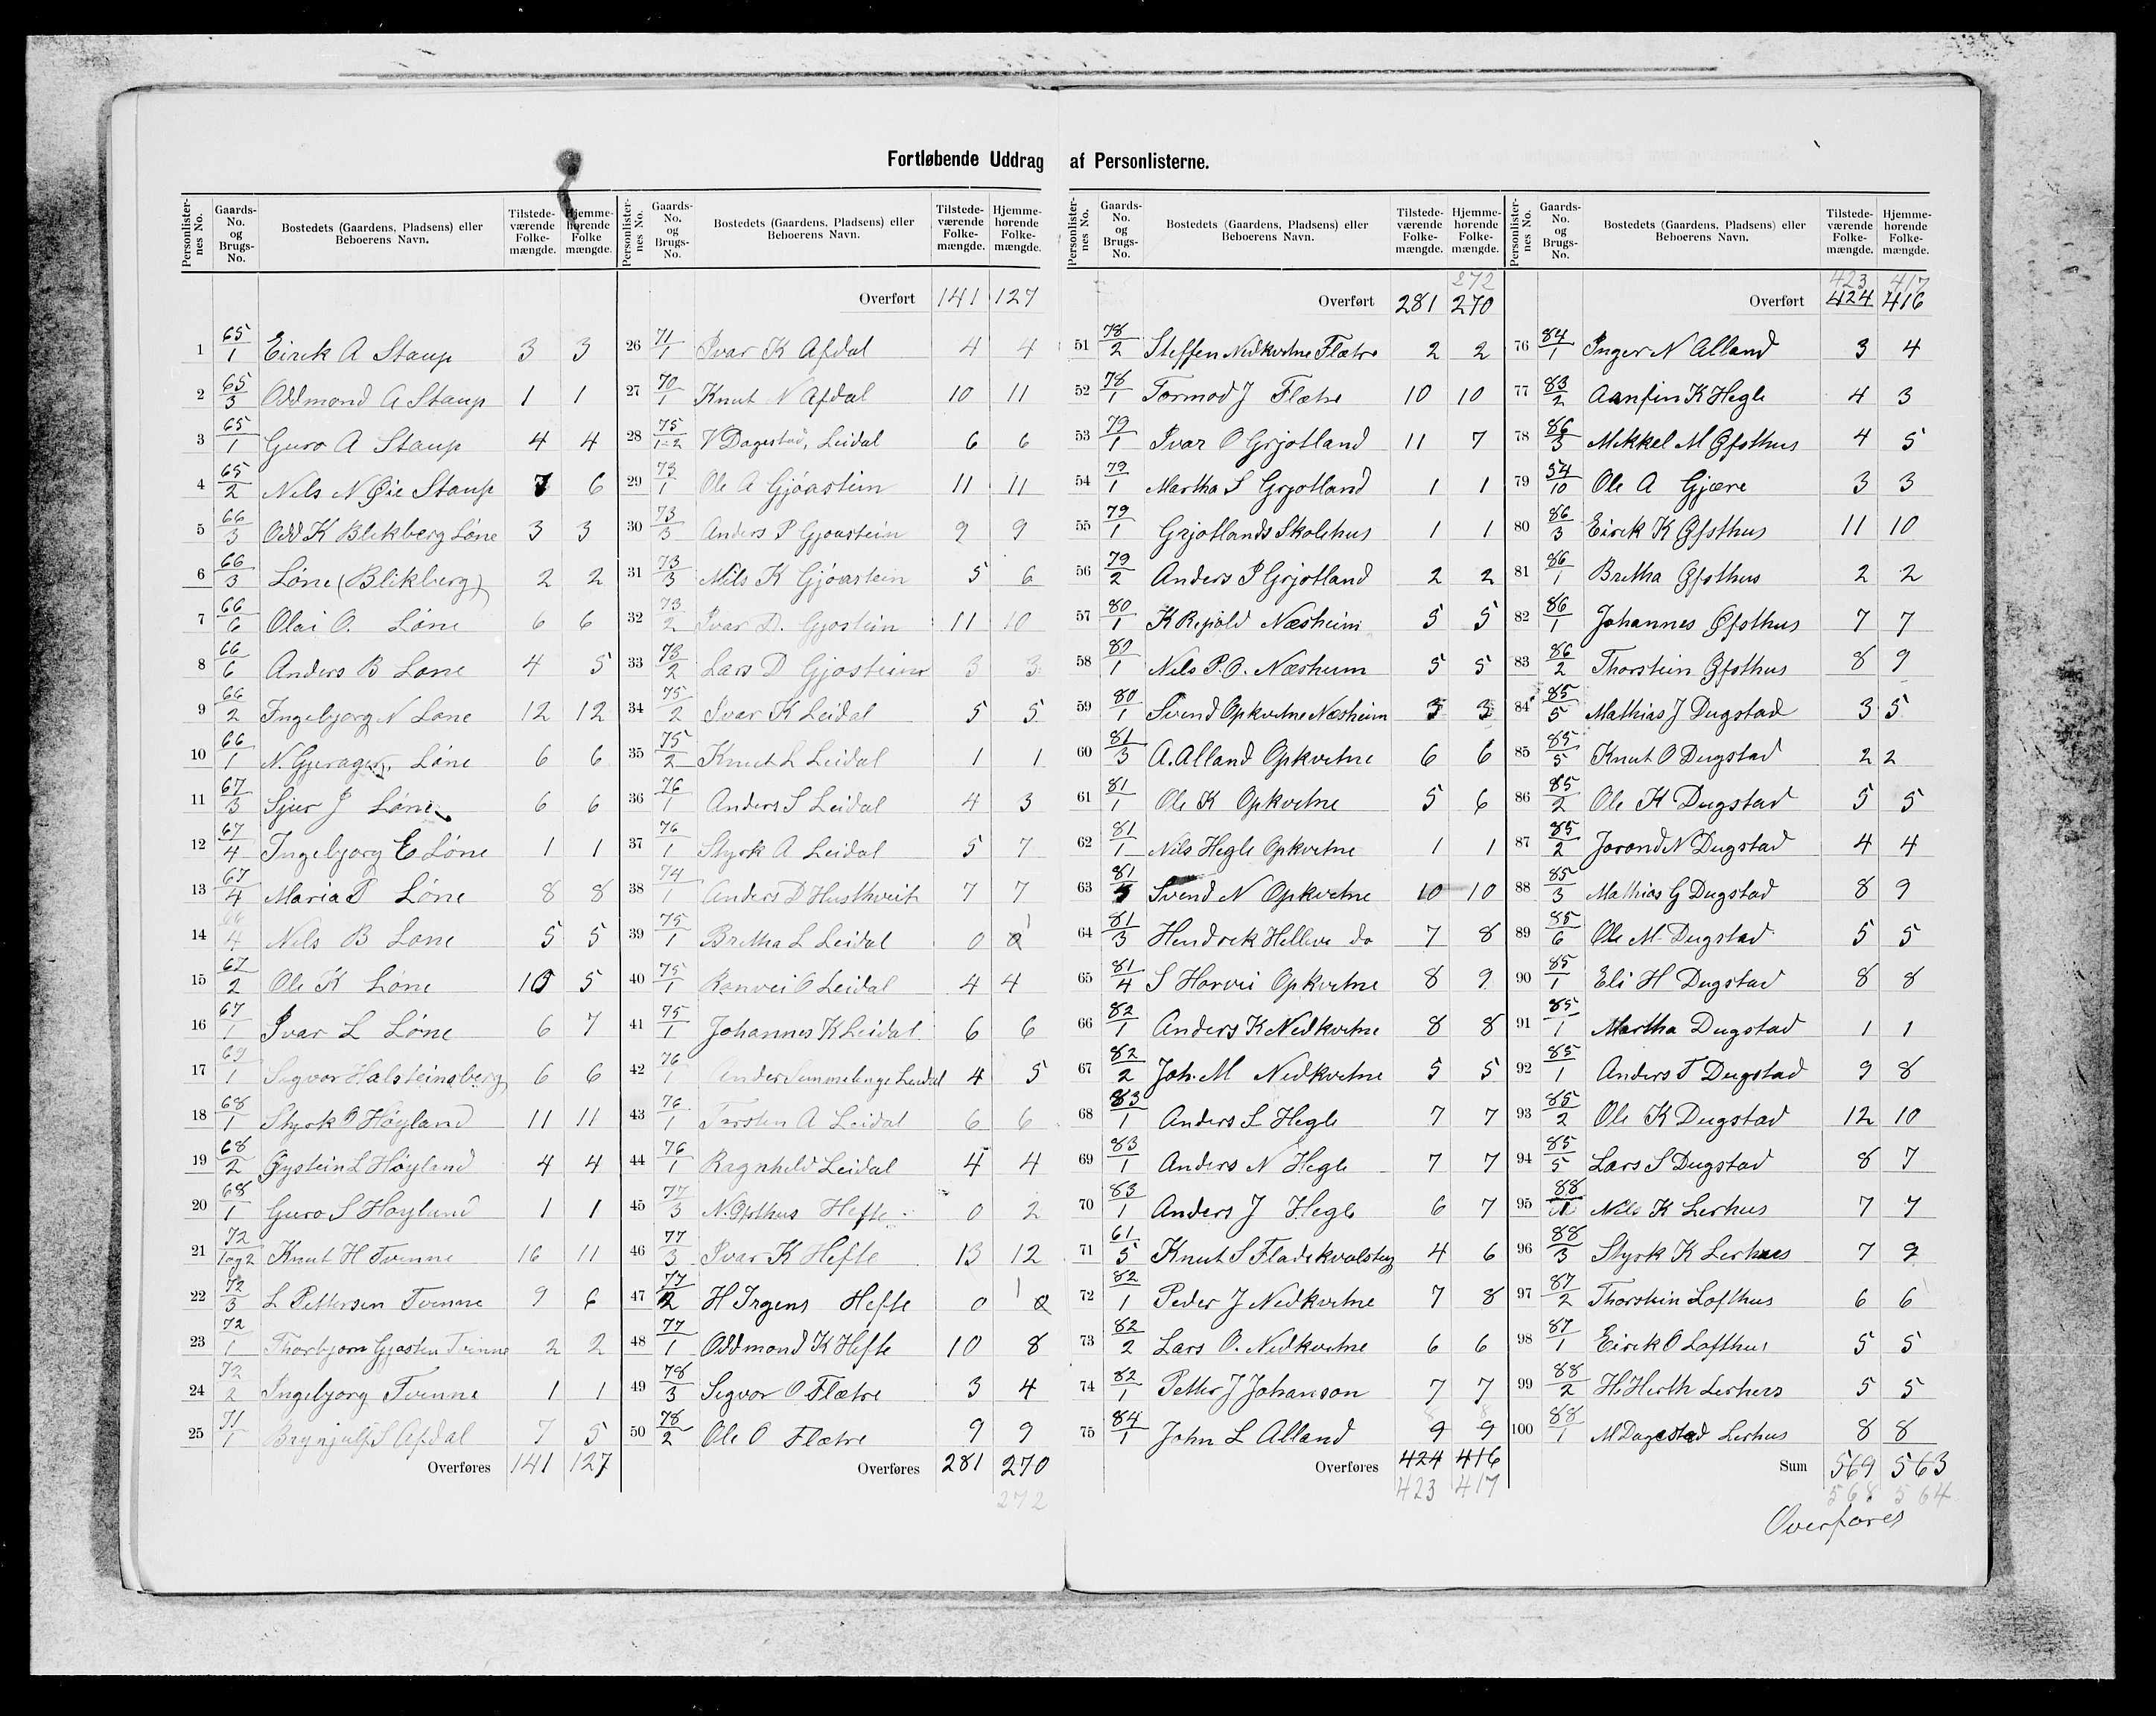 Fortløbende Uddrag af Personlisterne.
Personlisternes No. | Gaards-No. og Brugs-No. | Bostedets (Gaardens, Pladsens) eller Beboerens Navn. | Tilstedeværende Folkemængde. | Hjemmehørende Folkemængde.
1 65/1 Eirik A Staup 3 3
2 65/3 Oddmond A Staup 1 1
3 65/1 Guro A Staup 4 4
4 65/2 Nils N Øie Staup 7 6
5 66/3 Odd K Blikberg Løne 3 3
6 66/3 Løne (Blikberg) 2 2
7 66/6 Olai O. Løne 6 6
8 66/6 Anders B Løne 4 5
9 66/2 Ingebjørg N Løne 12 12
10 66/1 N. Gjerager, Løne 6 6
11 67/3 Sjur J Løne 6 6
12 67/4 Ingebjørg E Løne 1 1
13 67/4 Maria T Løne 8 8
14 66/4 Nils B Løne 5 5
15 67/2 Ole K Løne 10 5
16 67/1 Ivar L Løne 6 7
17 69/1 Sigvor Halsteinsberg 6 6
18 68/1 Styrk O Høyland 11 11
19 68/2 Øystein L Høyland 4 4
20 68/1 Guro S Høyland 1 1
21 72/1og2 Knut H Tvinne 16 11
22 72/3 L Pettersen Tvinne 9 6
23 72/1 Thorbjørn Gjøstein Tvinne 2 2
24 72/2 Ingebjørg Tvinne 1 1
25 71/1 Brynjulf S Afdal 7 5
Overføres 141 127
Overført 141 127
26 71/1 Ivar K Afdal 4 4
27 70/1 Knut N Afdal 10 11
28 75/1-2 V Dagestad, Leidal 6 6
29 73/1 Ole A Gjøastein 11 11
30 73/3 Anders P Gjøastein 9 9
31 73/3 Nils K Gjøastein 5 6
32 73/2 Ivar D. Gjøstein 11 10
33 73/2 Lars D Gjøstein 3 3
34 75/2 Ivar K Leidal 5 5
35 75/2 Knut L Leidal 1 1
36 76/1 Anders S Leidal 4 3
37 76/1 Styrk A Leidal 5 7
38 74/1 Anders D Husthveit 7 7
39 75/1 Britha L Leidal 0 1
40 75/1 Ranvei O Leidal 4 4
41 75/1 Johannes K Leidal 6 6
42 76/1 Leidal 4 5
43 76/1 Torsten A Leidal 6 6
44 76/1 Ragnhild Leidal 4 4
45 77/3 N. Øfsthus Hefte 0 2
46 77/3 Ivar K Hefte 13 12
47 77/2 H Irgens Hefte 0 1
48 77/1 Oddmond K Hefte 10 8
49 78/3 Sigvor O Flætre 3 4
50 78/2 Ole O Flætre 9 9
Overføres 281 270
272
272
Overført 281 270
51 78/2 Steffen Nedkvitne Flætre 2 2
52 78/1 Tormod J Flætre 10 10
53 79/1 Ivar O Grjotland 11 7
54 79/1 Martha S Grjotland 1 1
55 79/1 Grjotlands Skolehus 1 1
56 79/2 Anders P Grjotland 2 2
57 80/1 K Repiold Næsheim 5 5
58 80/1 Nils P. O. Næsheim 5 5
59 80/1 Svend Opkvitne Næsheim 3 3
60 81/3 A. Alland Opkvitne 6 6
61 81/1 Ole K Opkvitne 5 6
62 81/1 Nils Hegle Opkvitne 1 1
63 81/5 Svend N Opkvitne 10 10
64 81/3 Hendrek Helleve do 7 8
65 81/4 S Horvei Opkvitne 8 9
66 82/1 Anders K Nedkvitne 8 8
67 82/2 Joh. M Nedkvitne 5 5
68 83/1 Anders L Hegle 7 7
69 83/1 Anders N Hegle 7 7
70 83/1 Anders J Hegle 6 7
71 61/5 Knut S Fladekvalsteg 4 6
72 82/1 Peder J Nedkvitne 7 8
73 82/2 Lars O. Nedkvitne 6 6
74 82/1 Petter J Johanson 7 7
75 84/1 John L Alland 9 9
8 8
Overføres 424 416
423 417
423 417
Overført 424 416
76 84/1 Inger N Alland 3 4
77 83/2 Aanfin K Hegle 4 3
78 86/3 Mikkel M Øfsthus 4 5
79 54/10 Ole A Gjære 3 3
80 86/3 Eirik K Øfsthus 11 10
81 86/1 Britha Øfsthus 2 2
82 86/1 Johannes Øfsthus 7 7
83 86/2 Thorstein Øfsthus 8 9
84 85/5 Mathias J Dugstad 3 5
85 85/5 Knut O Dugstad 2 2
86 85/2 Ole K Dugstad 5 5
87 85/2 Jorond N Dugstad 4 4
88 85/3 Mathias G Dugstad 8 9
89 85/6 Ole M. Dugstad 5 5
90 85/1 Eli H Dugstad 8 8
91 85/1 Martha Dugstad 1 1
92 85/1 Anders T Dugstad 9 8
93 85/2 Ole K Dugstad 12 10
94 85/5 Lars S Dugstad 8 7
95 88 Nils K Lerhus 7 7
96 88/3 Styrk K Lerhus 7 9
97 87/2 Thorstein Lofthus 6 6
98 87/1 Eirik O Lofthus 5 5
99 88/2 H. Hirth Lerhus 5 5
100 88/1 M Dagestad Lerhus 8 8
Sum 569 563
568 564
Overføres